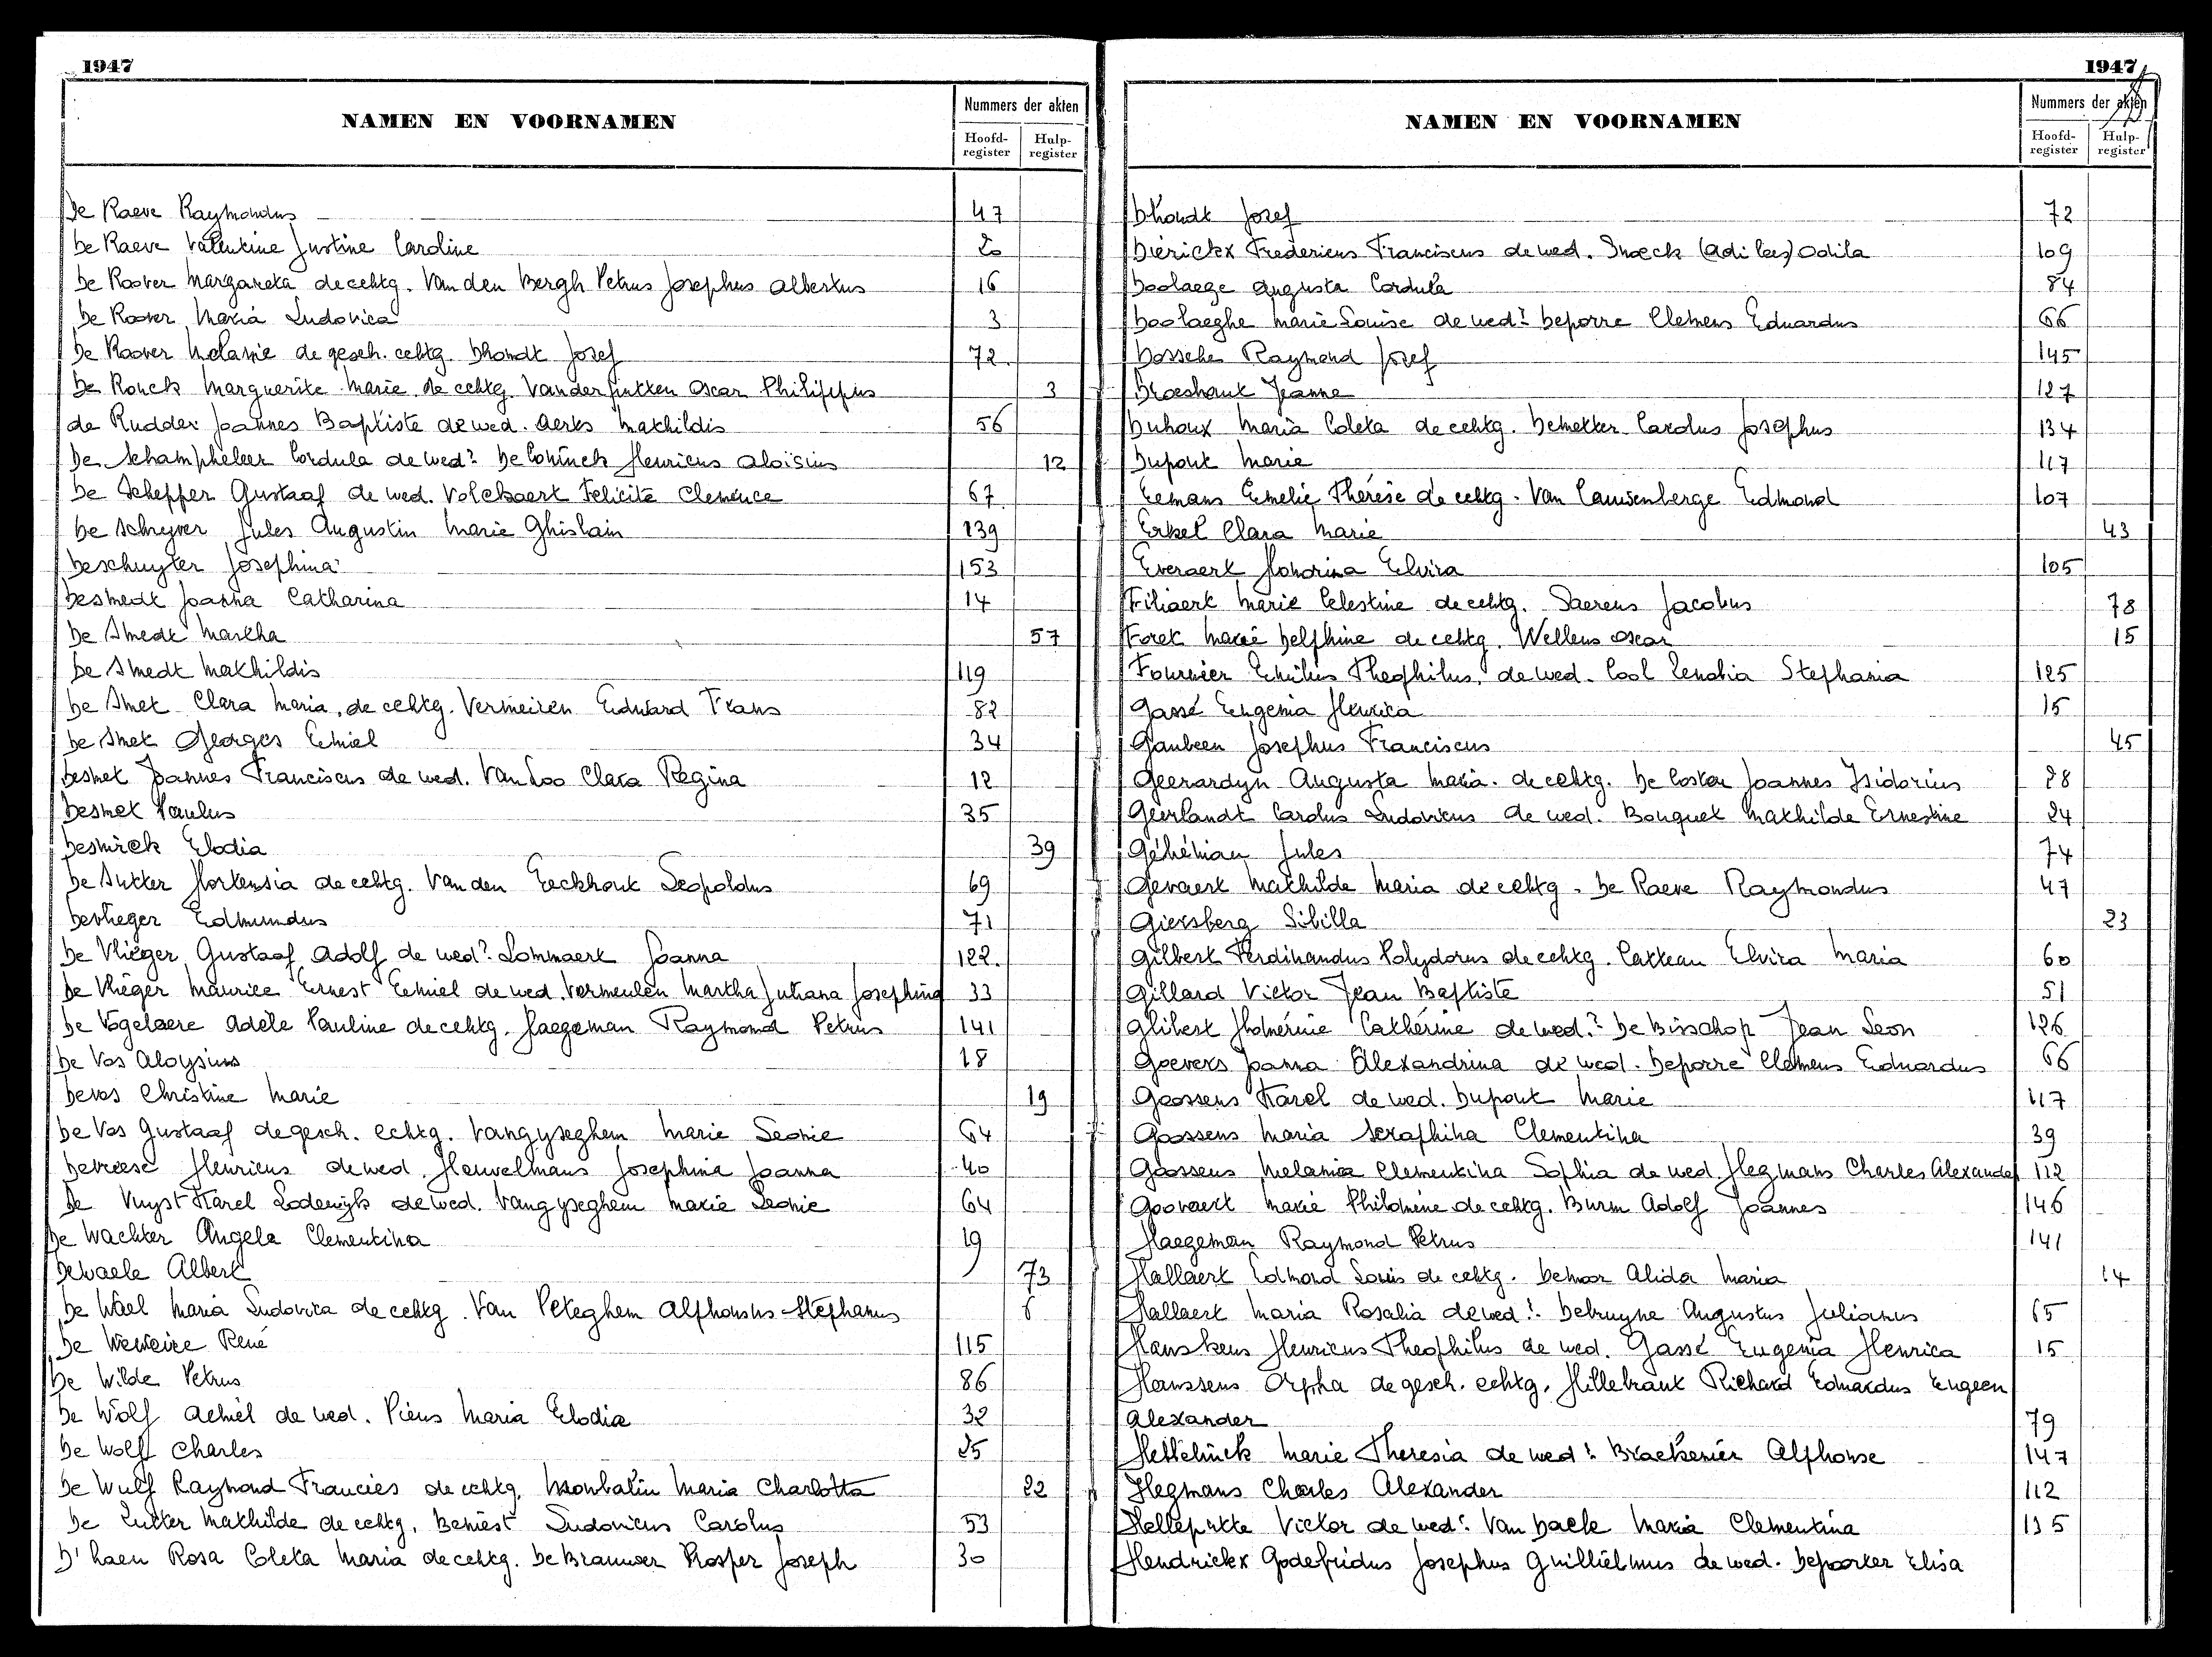 1947
NAMEN EN VOORNAMEN
Nummers der akten
Hoofd-register
Hulp-register
De Raeve Raymondus 47
De Raeve Valentine Justine Caroline 20
De Roover Margareta de echtg. Van den Bergh Petrus Josephus Albertus 16
De Roover Maria Ludovica 3
De Roover Melanie de gesch. echtg. Dhondt Josef 72
De Rouck Marguerite Marie de echtg. Vander Putten Oscar Philippus 3
de Rudder Joannes Baptiste de wed. Aerts Mathildis 56
De Schampheleer Cordula de wed? De Coninck Henricus Aloïsius 12
De Schepper Gustaaf de wed. Volckaert Felicite Clemence 67
De Schryver Jules Augustin Marie Ghislain 139
Deschuyter Josephina 153
Desmedt Joanna Catharina 14
De Smedt Martha 57
De Smedt Mathildis 119
De Smet Clara Maria de echtg. Vermeiren Eduard Frans 82
De Smet Georges Emiel 34
Desmet Joannes Franciscus de wed. Van Loo Clara Regina 12
Desmet Paulus 35
Desmick Elodia 39
De Sutter Hortensia de echtg. Van den Eeckhout Leopoldus 69
Devlieger Edmundus 71
De Vlieger Gustaaf Adolf de wed? Lommaert Joanna 122.
De Vlieger Maurice Ernest Emiel de wed. Vermeulen Martha Juliana Josephina 33
De Vogelaere Adèle Pauline de echtg. Haegeman Raymond Petrus 141
De Vos Aloysius 18
Devos Christine Marie 19
De Vos Gustaaf de gesch. echtg. Vangyseghem Marie Leonie 64
Devreese Henricus de wed. Heuvelmans Josephina Joanna 40
De Vuyst Karel Lodewijk de wed. Vangyseghem Marie Leonie 64
De Wachter Angela Clementina 19
Dewaele Albert 73
De Wael Maria Ludovica de echtg. Van Peteghem Alfhonsus Stephanus 6
De Weweire René 115
De Wilde Petrus 86
De Wolf Achiel de wed. Piens Maria Elodia 32
De Wolf Charles 25
De Wulf Raymond Francies de echtg. Monbalin Maria Charlotta 22
De Zutter Mathilde de echtg. Beniest Ludovicus Carolus 53
D'haen Rosa Coleta Maria de echtg. De Brauwer Prosper Joseph 30
1947
NAMEN EN VOORNAMEN
Nummers der akten
Hoofd-register
Hulp-register
Dhondt Josef 72
Dierickx Fredericus Franciscus de wed. Snoeck (Adilees) Odila 109
Doolaege Augusta Cordula 84
Doolaeghe Marie Louise de wed? Deporre Clemens Eduardus 66
Dossche Raymond Jozef 145
Droeshout Jeanne 127
Duhoux Maria Coleta de echtg. Demetter Carolus Josephus 134
Dupont Marie 117
Eemans Emelie Thérèse de echtg. Van Cauwenberge Edmond 107
Erkel Clara Marie 43
Everaert Honorina Elvira 105
Filiaert Marie Celestine de echtg. Saerens Jacobus 78
Foret Marie Delphine de echtg. Wellens Oscar 15
Fournier Emilius Theophilus de wed. Cool Zenobia Stephania 125
Gassé Eugenia Henrica 15
Gaubeen Josephus Franciscus 45
Geerardyn Augusta Maria de echtg. De Coster Joannes Isidorius 28
Geerlandt Carolus Ludovicus de wed. Bouquet Mathilde Ernestine 24
Géhénian Jules 74
Gevaert Mathilde Maria de echtg. De Raeve Raymondus 47
Giersberg Sibilla 23
Gilbert Ferdinandus Polydorus de echtg. Catteau Elvira Maria 60
Gillard Victor Jean Baptiste 51
Glibert Homérine Catherine de wed? De Bisschop Jean Leon 126
Goevers Joanna Alexandrina de wed. Deporre Clemens Eduardus 66
Goossens Karel de wed. Dupont Marie 117
Goossens Maria Seraphina Clementina 39
Goossens Melania Clementina Sophia de wed. Hegmans Charles Alexander 112
Goovaert Marie Philomène de echtg. Burm Adolf Joannes 146
Haegeman Raymond Petrus 141
Hallaert Edmond Louis de echtg. Demoor Alida Maria 14
Hallaert Maria Rosalia de wed? Debruyne Augustus Julianus 65
Hanskens Henricus Theophilus de wed. Gassé Eugenia Henrica 15
Hanssens Orpha de gesch. echtg. Hillebrant Richard Eduardus Eugeen
Alexander 79
Hellelinck Marie Theresia de wed? Braekenier Alphonse 147
Hegmans Charles Alexander 112
Helleputte Victor de wed? Van Daele Maria Clementina 135
Hendrickx Godefridus Josephus Guilliélmus de wed. Depoorter Elisa